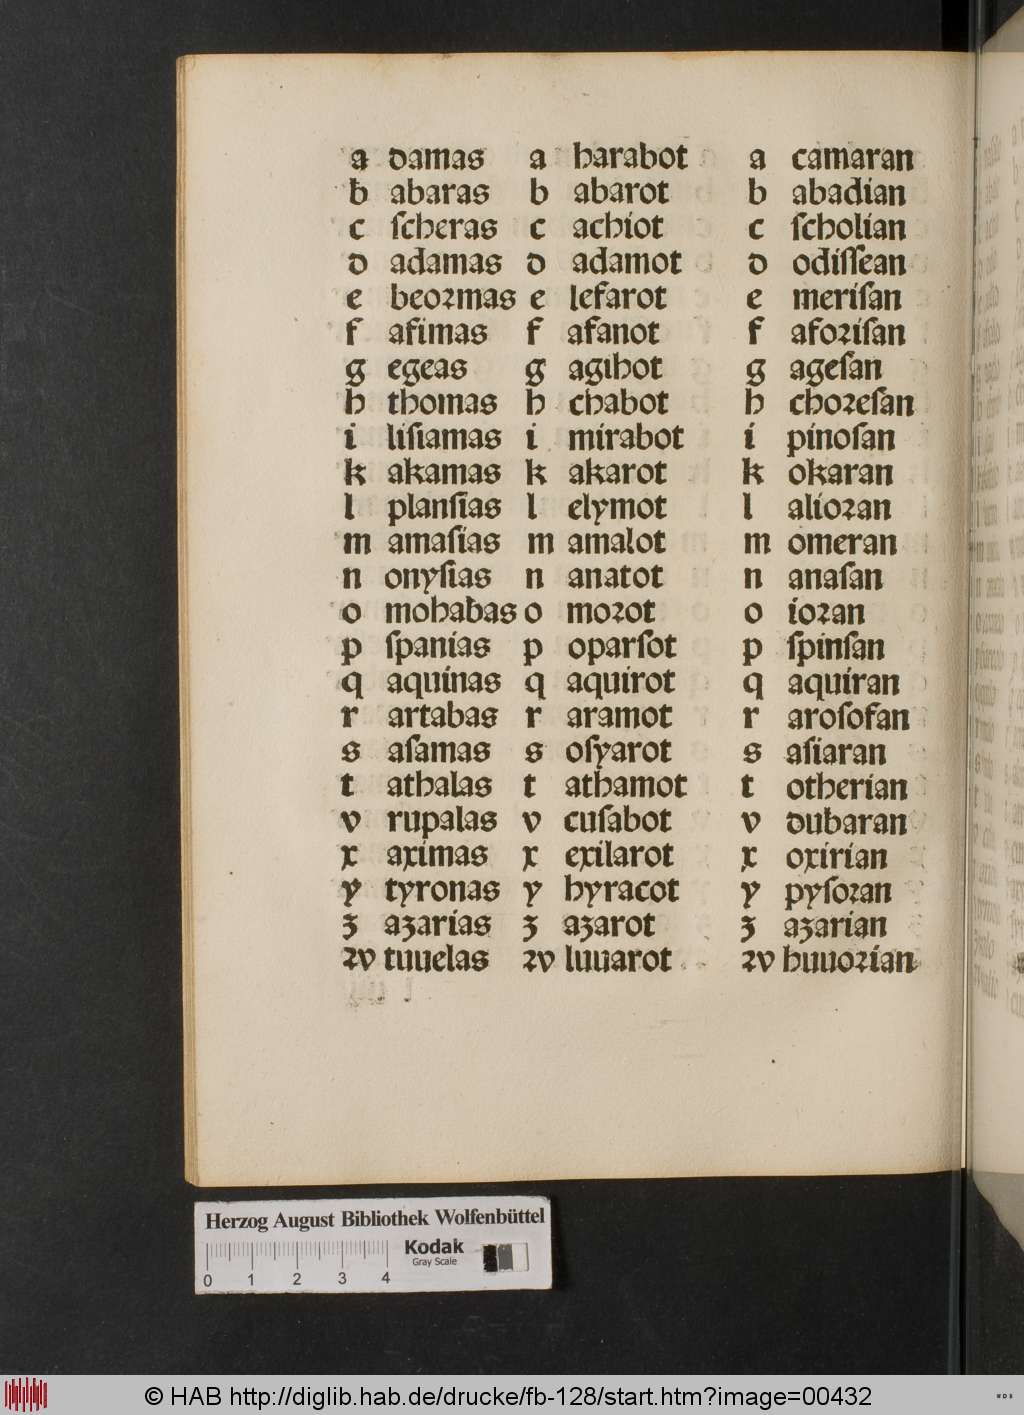 a damas a harabot a camaran
b abaras b abarot b abadian
c ſcheras c achiot c ſcholian
d adamas d adamot d odiſſean
e beoꝛmas e lefarot e meriſan
f afimas f afanot f afoꝛiſan
g egeas g agihot g ageſan
h thomas h chabot h choꝛeſan
i liſiamas i mirabot i pinoſan
k akamas k akarot k okaran
l planſias l elymot l alioꝛan
m amaſias m amalot m omeran
n onyſias n anatot n anaſan
o mohabas o moꝛot o ioꝛan
p ſpanias p oparſot p ſpinſan
q aquinas q aquirot q aquiran
r artabas r aramot r aroſofan
s aſamas s oſyarot s aſiaran
t athalas t athamot t otherian
v rupalas v cuſabot v dubaran
x aximas x exilarot x oxirian
y tyronas y hyracot y pyſoꝛan
ʒ aʒarias ʒ aʒarot ʒ aʒarian
ꝛv tuuelas ꝛv luuarot ꝛv huuoꝛian
Herzog August Bibliothek Wolfenbüttel
Kodak
Gray Scale
0 1 2 3 4
© HAB http://diglib.hab.de/drucke/fb-128/start.htm?image=00432
WDB